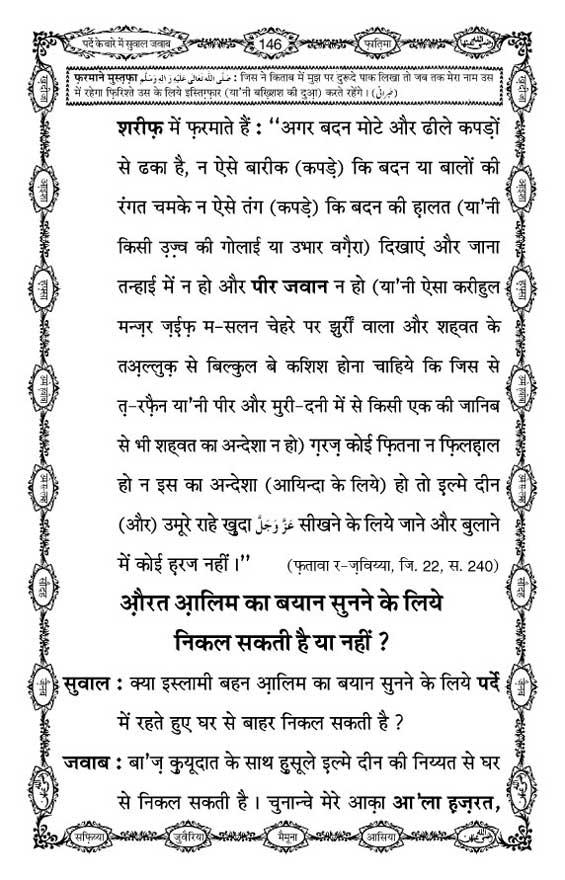 पर्दे के बारे में सुवाल जवाब
146
फ़ातिमा
फ़रमाने मुस्तफ़ा صَلَّى اللهُ تَعَالٰى عَلَيْهِ وَاٰلِهٖ وَسَلَّم : जिस ने किताब में मुझ पर दुरूदे पाक लिखा तो जब तक मेरा नाम उस
में रहेगा फ़िरिश्ते उस के लिये इस्तिग़्फ़ार (या'नी बख़्शिश की दुआ) करते रहेंगे। (طبرانی)
शरीफ़ में फ़रमाते हैं : ‘‘अगर बदन मोटे और ढीले कपड़ों
से ढका है, न ऐसे बारीक (कपड़े) कि बदन या बालों की
रंगत चमके न ऐसे तंग (कपड़े) कि बदन की हालत (या'नी
किसी उ़ज़्व की गोलाई या उभार वग़ैरा) दिखाएं और जाना
तन्हाई में न हो और पीर जवान न हो (या'नी ऐसा करीहुल
मन्ज़र ज़ई़फ़ म-सलन चेहरे पर झुर्री वाला और शह्वत के
तअ़ल्लुक़ से बिल्कुल बे कशिश होना चाहिये कि जिस से
त़-रफ़ैन या'नी पीर और मुरी-दनी में से किसी एक की जानिब
से भी शह्वत का अन्देशा न हो) ग़रज़ कोई फ़ितना न फ़िलहाल
हो न इस का अन्देशा (आयिन्दा के लिये) हो तो इ़ल्मे दीन
(और) उमूरे राहे ख़ुदा عَزَّ وَجَلَّ सीखने के लिये जाने और बुलाने
में कोई ह़रज नहीं।’’ (फ़तावा र-ज़विय्या, जि. 22, स. 240)
औ़रत आ़लिम का बयान सुनने के लिये
निकल सकती है या नहीं ?
सुवाल : क्या इस्लामी बहन आ़लिम का बयान सुनने के लिये पर्दे
में रहते हुए घर से बाहर निकल सकती है ?
जवाब : बा'ज़ क़ुयूदात के साथ हुसूले इ़ल्मे दीन की निय्यत से घर
से निकल सकती है। चुनान्चे मेरे आक़ा आ'ला ह़ज़रत,
सफ़िय्या
जुवैरिया
मैमूना
आसिया